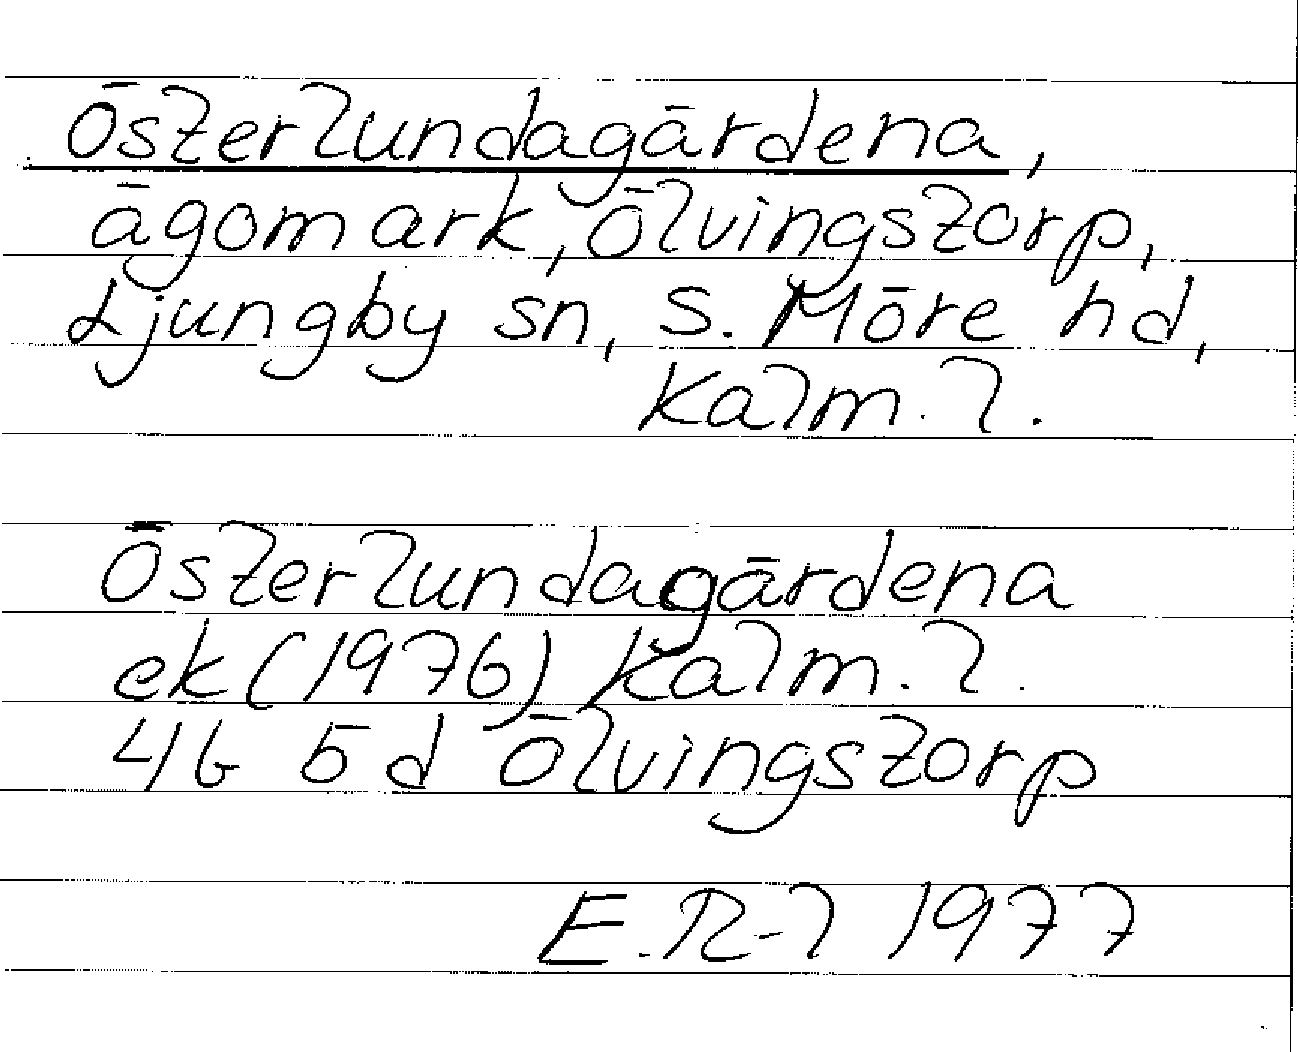 Österlundagårdena,
ägomark, Ölvingstorp,
Ljungby sn, S. Möre hd,
Kalm. l.
Österlundagårdena
ek (1976) Kalm. l.
4G 5d Ölvingstorp
E. R-l 1977